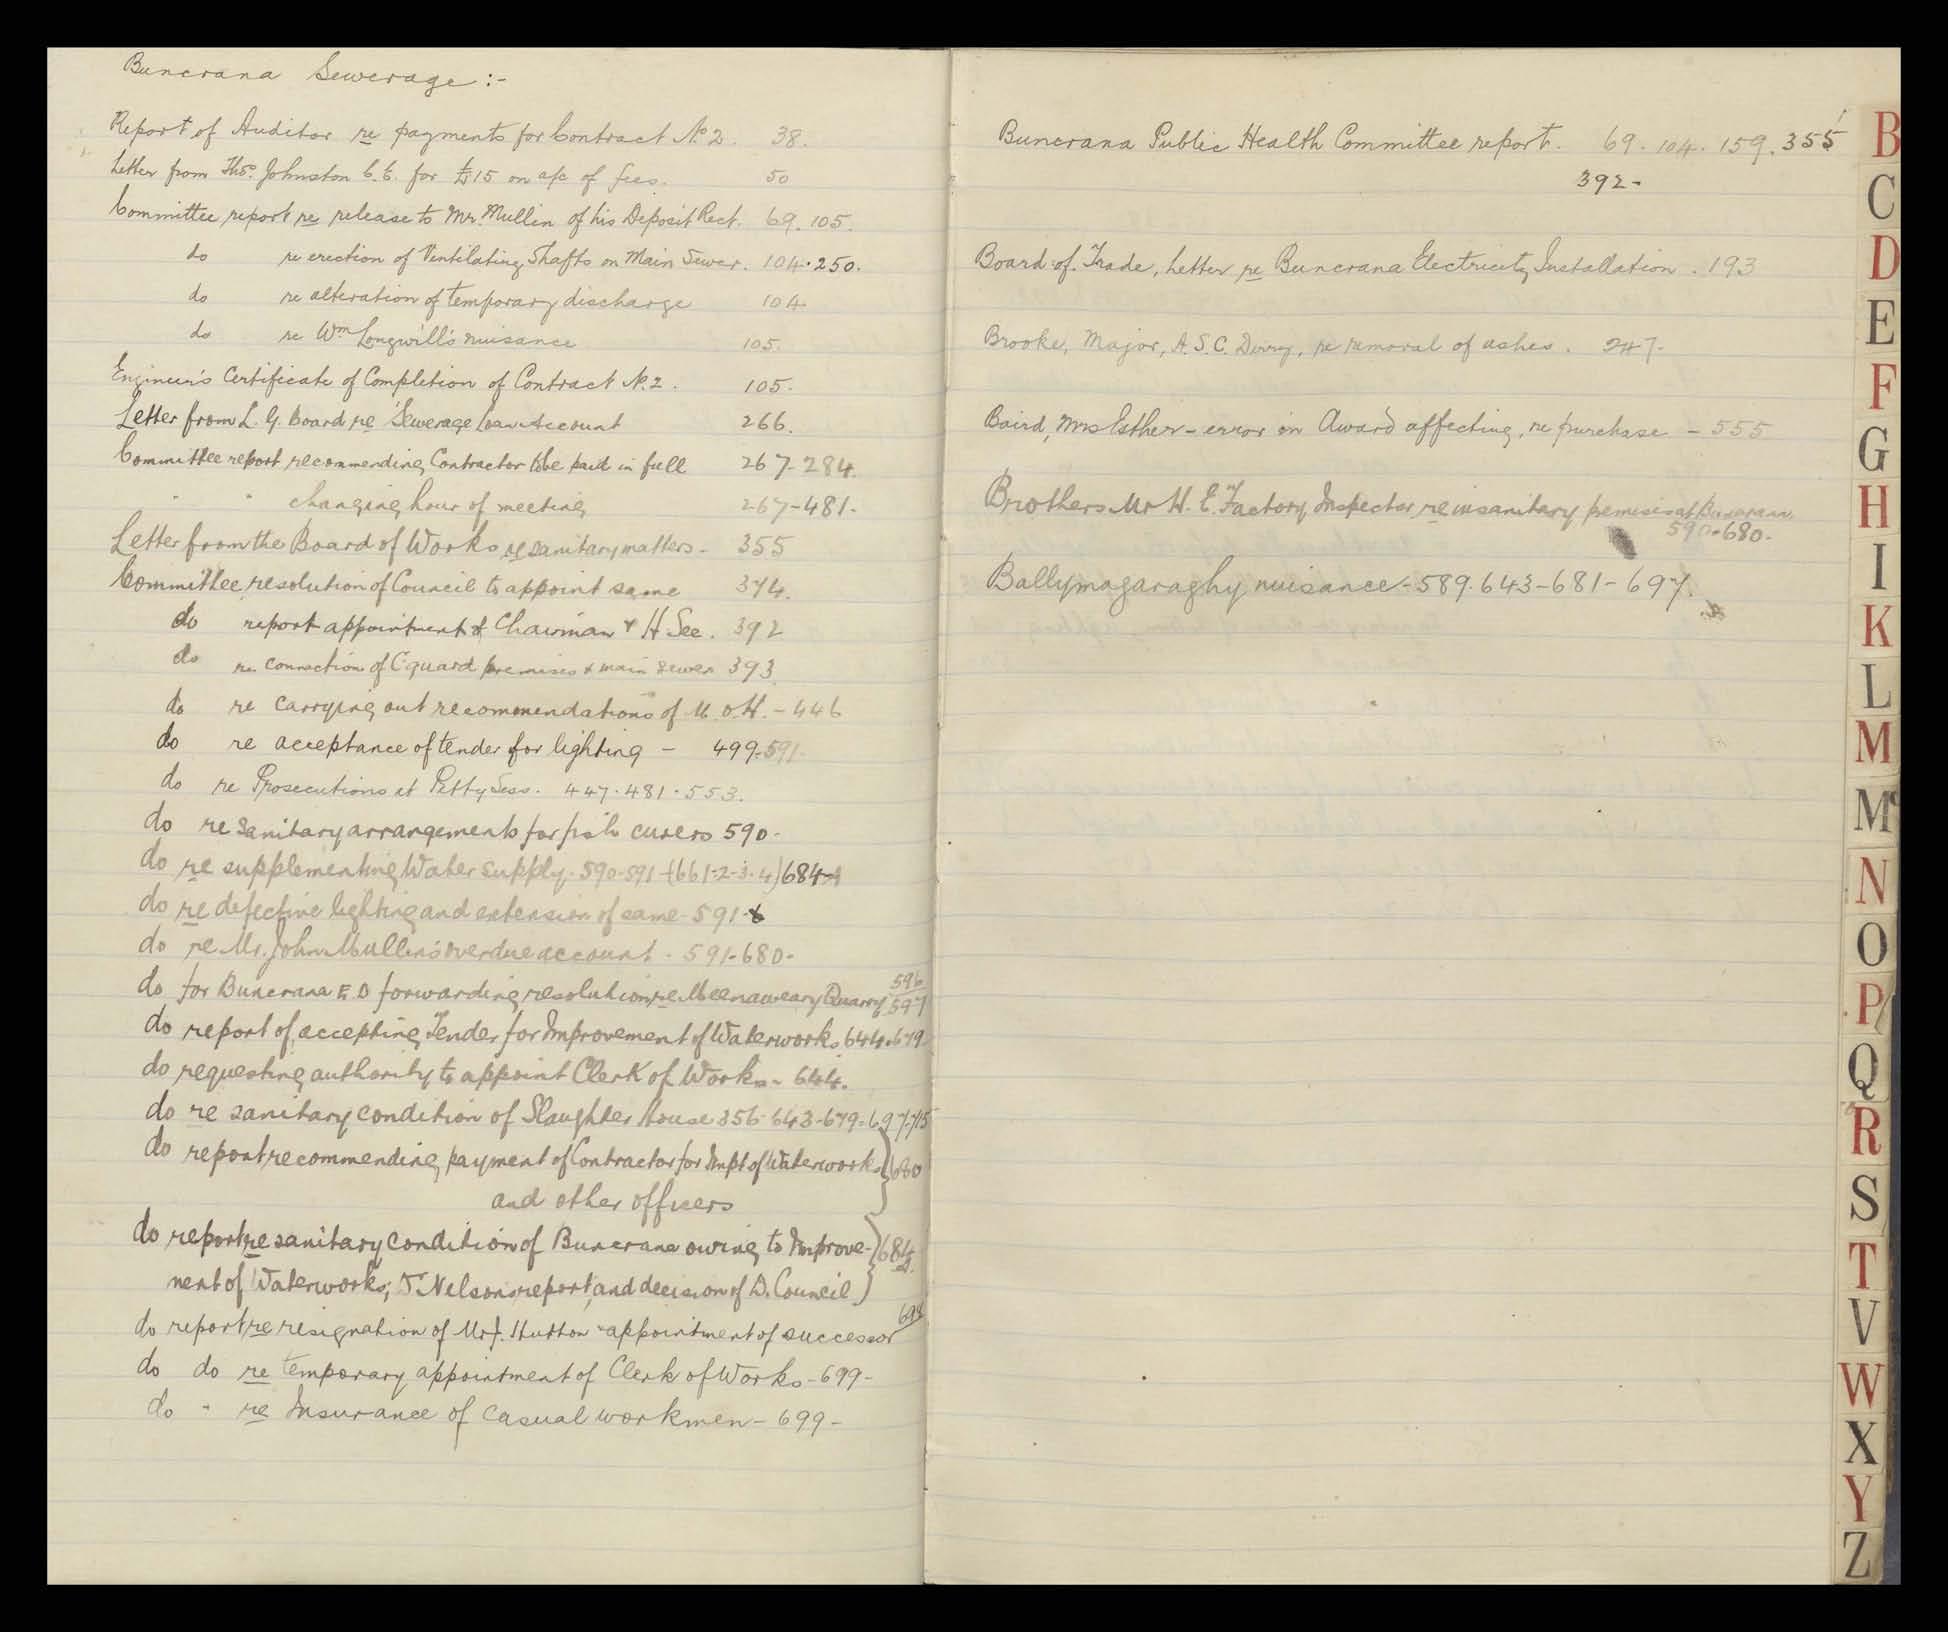 Buncrana Sewerage :-
Report of Auditor re payments for Contract No 2. 38.
Letter from Thos. Johnston C.E. for £15 on a/c of fees. 50
Committee report re release to Mr. Mullin of his Deposit Rect. 69. 105.
do re erection of Ventilating Shafts on Main Sewer. 104.250.
do re alteration of temporary discharge 104.
do re Wm Longwill's nuisance 105.
Engineer's Certificate of Completion of Contract No. 2. 105.
Letter from L. G. Board re Sewerage Loan Account 266.
Committee report recommending Contractor to be paid in full 267-284.
" " changing hour of meeting 267-481-
Letter from the Board of Works re sanitary matters - 355
Committee, resolution of Council to appoint same 374.
do report appointment of Chairman & H Sec. 392
do re connection of C.guard premises & main sewer 393
do re carrying out recommendations of M.O.H. - 446
do re acceptance of tender for lighting - 499-591-
do re Prosecutions at Petty Sess. 447.481.553.
do re Sanitary arrangements for fish curers 590-
do re supplementing Water Supply-590-591-(661-2-3-4)684
do re defective lighting and extension of same-591-
do re Mr. John Mullin's overdue account - 591-680-
do for Buncrana E.D forwarding resolution re Meenaweary Quarry 596 597
do report of accepting Tender for Improvement of Waterworks 644.679
do requesting authority to appoint Clerk of Works - 644.
do re sanitary condition of Slaughter House 356-643-679-697-715
do report recommending payment of Contractor for Impt of Waterworks } 680
and other officers
do report re sanitary condition of Buncrana owing to Improve- } 684
ment of Waterworks; Nelson's report, and decision of D. Council
do report re resignation of Mr J. Hutton appointment of successor
do do re temporary appointment of Clerk of Works - 699-
do " re Insurance of Casual workmen - 699-
Buncrana Public Health Committee report. 69. 104. 159. 355
392-
Board of Trade, Letter re Buncrana Electricity Installation. 193
Brooke, Major, A.S.C. Derry, re removal of ashes. 247-
Baird, Mrs Esther - error in Award affecting, re purchase - 555
Brothers Mr H. E. Factory Inspector re insanitary premises at Buncrana
590-680-
Ballymagaraghy nuisance - 589.643-681-697.
B
C
D
E
F
G
H
I
K
L
M
Mc
N
O
P
Q
R
S
T
V
W
X
Y
Z